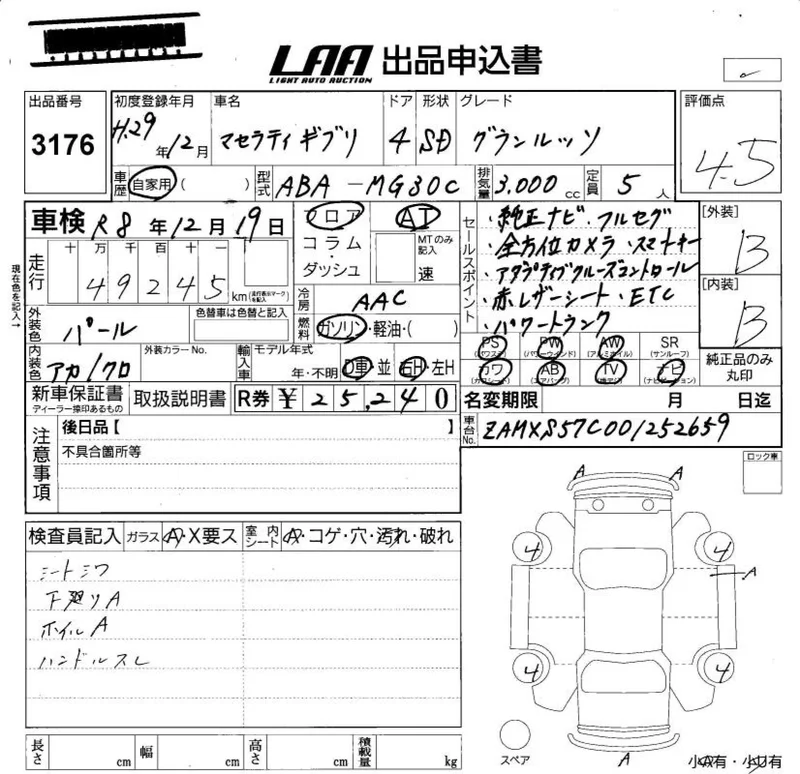 LAA 出品申込書
LIGHT AUTO AUCTION
出品番号 初度登録年月 車名 ドア 形状 グレード 評価点
3176 H.29年12月 マセラティ ギブリ 4 SD グランルッソ 4.5
車歴 自家用 ( ) 型式 ABA-MG30C 排気量 3.000 cc 定員 5人
車検 R8年12月19日 フロア AT セールスポイント ・純正ナビ・フルセグ [外装]
コラム・ダッシュ MTのみ記入 速 ・全方位カメラ・スマートキー B
走行 十万千百十一 49245 km (走行表示マークを記入) ・アダプティブクルーズコントロール
現在色を記入→ 冷房 AAC ・赤レザーシート・ETC [内装]
外装色 パール 色替車は色替と記入 燃料 ガソリン・軽油・( ) ・パワートランク B
PS (パワステ) PW (パワーウインド) AW (アルミホイル) SR (サンルーフ) 純正品のみ丸印
内装色 アカ/クロ 外装カラーNo. 輸入車 モデル年式 年・不明 D車・並 右H・左H カワ (カワシート) AB (エアバッグ) TV ナビ (ナビゲーション)
新車保証書 ディーラー捺印あるもの 取扱説明書 R券 ¥25,240 名変期限 月 日迄
注意事項 後日品【 】 車台No. ZAMXS57C001252659
不具合箇所等 ロック車
検査員記入 ガラス A・X要ス 室内シート A・コゲ・穴・汚れ・破れ
シートシワ
下廻りA
ホイルA
ハンドルスレ
A A
4 4
A
4 4
A
スペア
長さ cm 幅 cm 高さ cm 積載量 kg 小A有・小U有